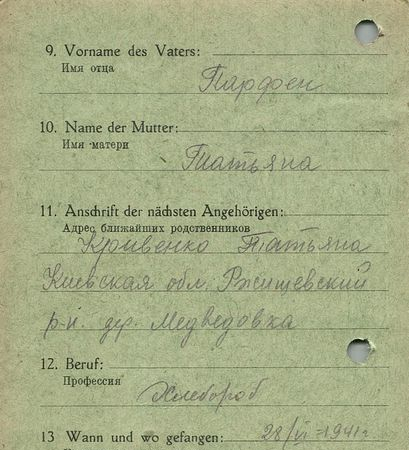 9. Vorname des Vaters:
Имя отца
Парфен
10. Name der Mutter:
Имя матери
Татьяна
11. Anschrift der nächsten Angehörigen:
Адрес ближайших родственников
Кривенко Татьяна
Киевская обл. Ржищевский
р-н. дер. Медведовка
12. Beruf:
Профессия
Хлебороб
13 Wann und wo gefangen: 28/VI-1941г